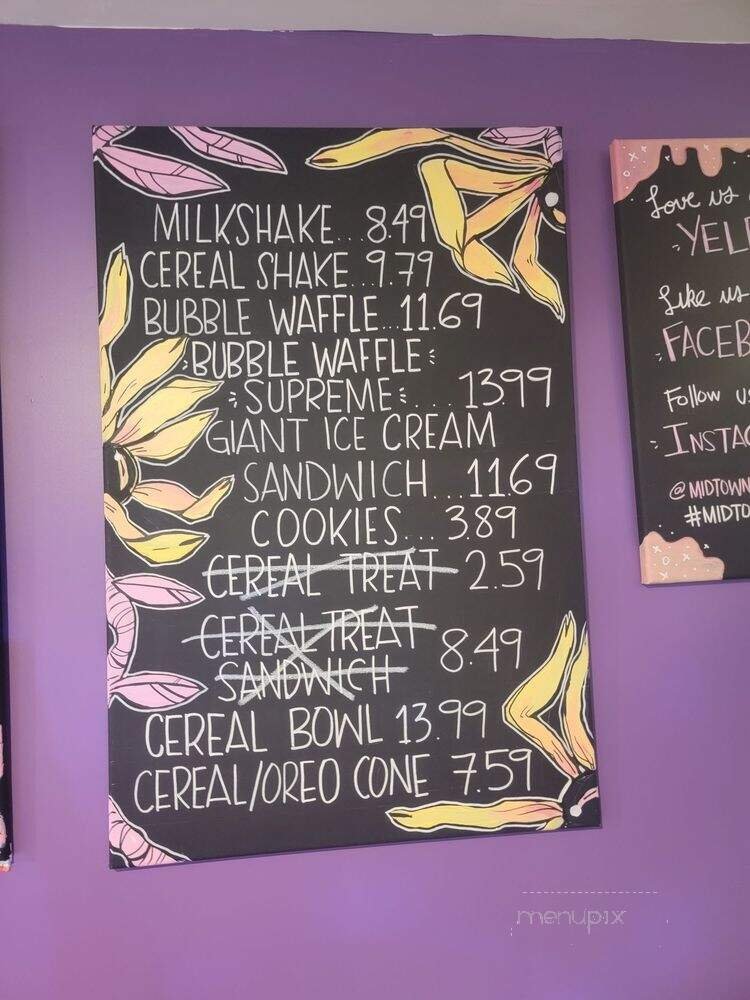 MILKSHAKE...8.49
CEREAL SHAKE...9.79
BUBBLE WAFFLE...11.69
BUBBLE WAFFLE
SUPREME....13.99
GIANT ICE CREAM
SANDWICH...11.69
COOKIES...3.89
CEREAL TREAT 2.59
CEREAL TREAT
SANDWICH 8.49
CEREAL BOWL 13.99
CEREAL/OREO CONE 7.59
Love us
YEL
Like us
FACEB
Follow us
INSTA
@MIDTOWN
#MIDTO
menupix